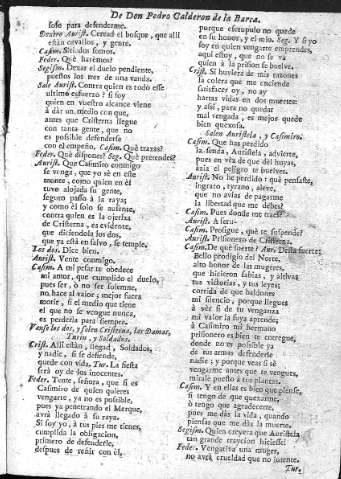 De Don Pedro Calderon de la Barca.
solo para defenderme.
Dentro Aurist. Cercad el bosque, que alli
están cavallos, y gente.
Casim. Sitiados somos.
Feder. Què harèmos?
Segism. Dexar el duelo pendiente,
puestos los tres de una vanda.
Sale Aurist. Contra quien es todo esse
ultimo esfuerzo? si soy
quien en vuestro alcance viene
à dàr un medio con que,
antes que Cristerna llegue
con tanta gente, que no
es possible defenderse
con el empeño. Casim. Què trazas?
Feder. Què dispones? Seg. Què pretendes?
Aurist. Que Casimiro conmigo
se venga, que yo sè en este
monte, como quien en èl
tuvo alojada su gente,
seguro passo à la raya;
y como èl solo se ausente,
contra quien es la ojeriza
de Cristerna, es evidente,
que diciendola los dos,
que ya està en salvo, se temple.
Los dos. Dice bien.
Aurist. Vente conmigo.
Casim. A mi pesar te obedece
mi amor, que cumplido el duelo,
pues ser, ò no ser solemne,
no hace al valor; mejor fuera
morir, si el medio que tiene
el que no se vengue nunca,
es perderla para siempre.
Vanse los dos, y salen Cristerna, las Damas,
Turin, y Soldados.
Crist. Alli estàn, llegad, Soldados,
y nadie, si se defiende,
quede con vida. Tur. La fiesta
serà oy de los inocentes.
Feder. Tente, señora, que si es
Casimiro de quien quieres
vengarte, ya no es possible,
pues ya penetrando el Merque,
avrà llegado à su raya.
Si soy yo, à tus pies me tienes,
cumplida la obligacion,
primero de defenderle,
despues de reñir con èl,
porque escrupulo no quede
en su honor, y el mio. Seg. Y si yo
soy en quien vengarte emprendes,
aqui estoy, que no se và
quien à la prision se buelve.
Crist. Si huviera de mis razones
la colera que me enciende
satisfacer oy, no ay
hartas vidas en dos muertes:
y assi, para no quedar
mal vengada, es mejor quede
bien quexosa.
Salen Auristela, y Casimiro.
Casim. Que has perdido
la senda, Auristela, advierte,
pues en vez de que dèl huyas,
àzia el peligro te buelves.
Aurist. No he perdido: què pensaste,
ingrato, tyrano, aleve,
que no avias de pagarme
la libertad que me debes?
Casim. Pues donde me traes?
Aurist. A ser-
Casim. Prosigue, què te suspende?
Aurist. Prisionero de Cristerna.
Casim. De què suerte? Aur. Desta suerte:
Bello prodigio del Norte,
alto honor de las mugeres,
que hicieron sabias, y altivas
tus victorias, y tus leyes;
corrida de que baldones
mi silencio, porque llegues
à vèr si de tu venganza
mi valor la suya aprende,
à Casimiro mi hermano
prisionero es bien te entregue,
donde no es possible ya
de tus armas defenderle
nadie: y porque veas si sè
vengarme antes que te vengues,
mirale puesto à tus plantas.
Casim. Y en ellas es bien que piense,
si tengo de que quexarme,
ò tengo que agradecerte,
pues me dàs la vida, quando
piensas que me dàs la muerte.
Segism. Quien creyera que Auristela
tan grande traycion hiciesse!
Feder. Vengativa una muger,
no avrà crueldad que no intente.
Tur.